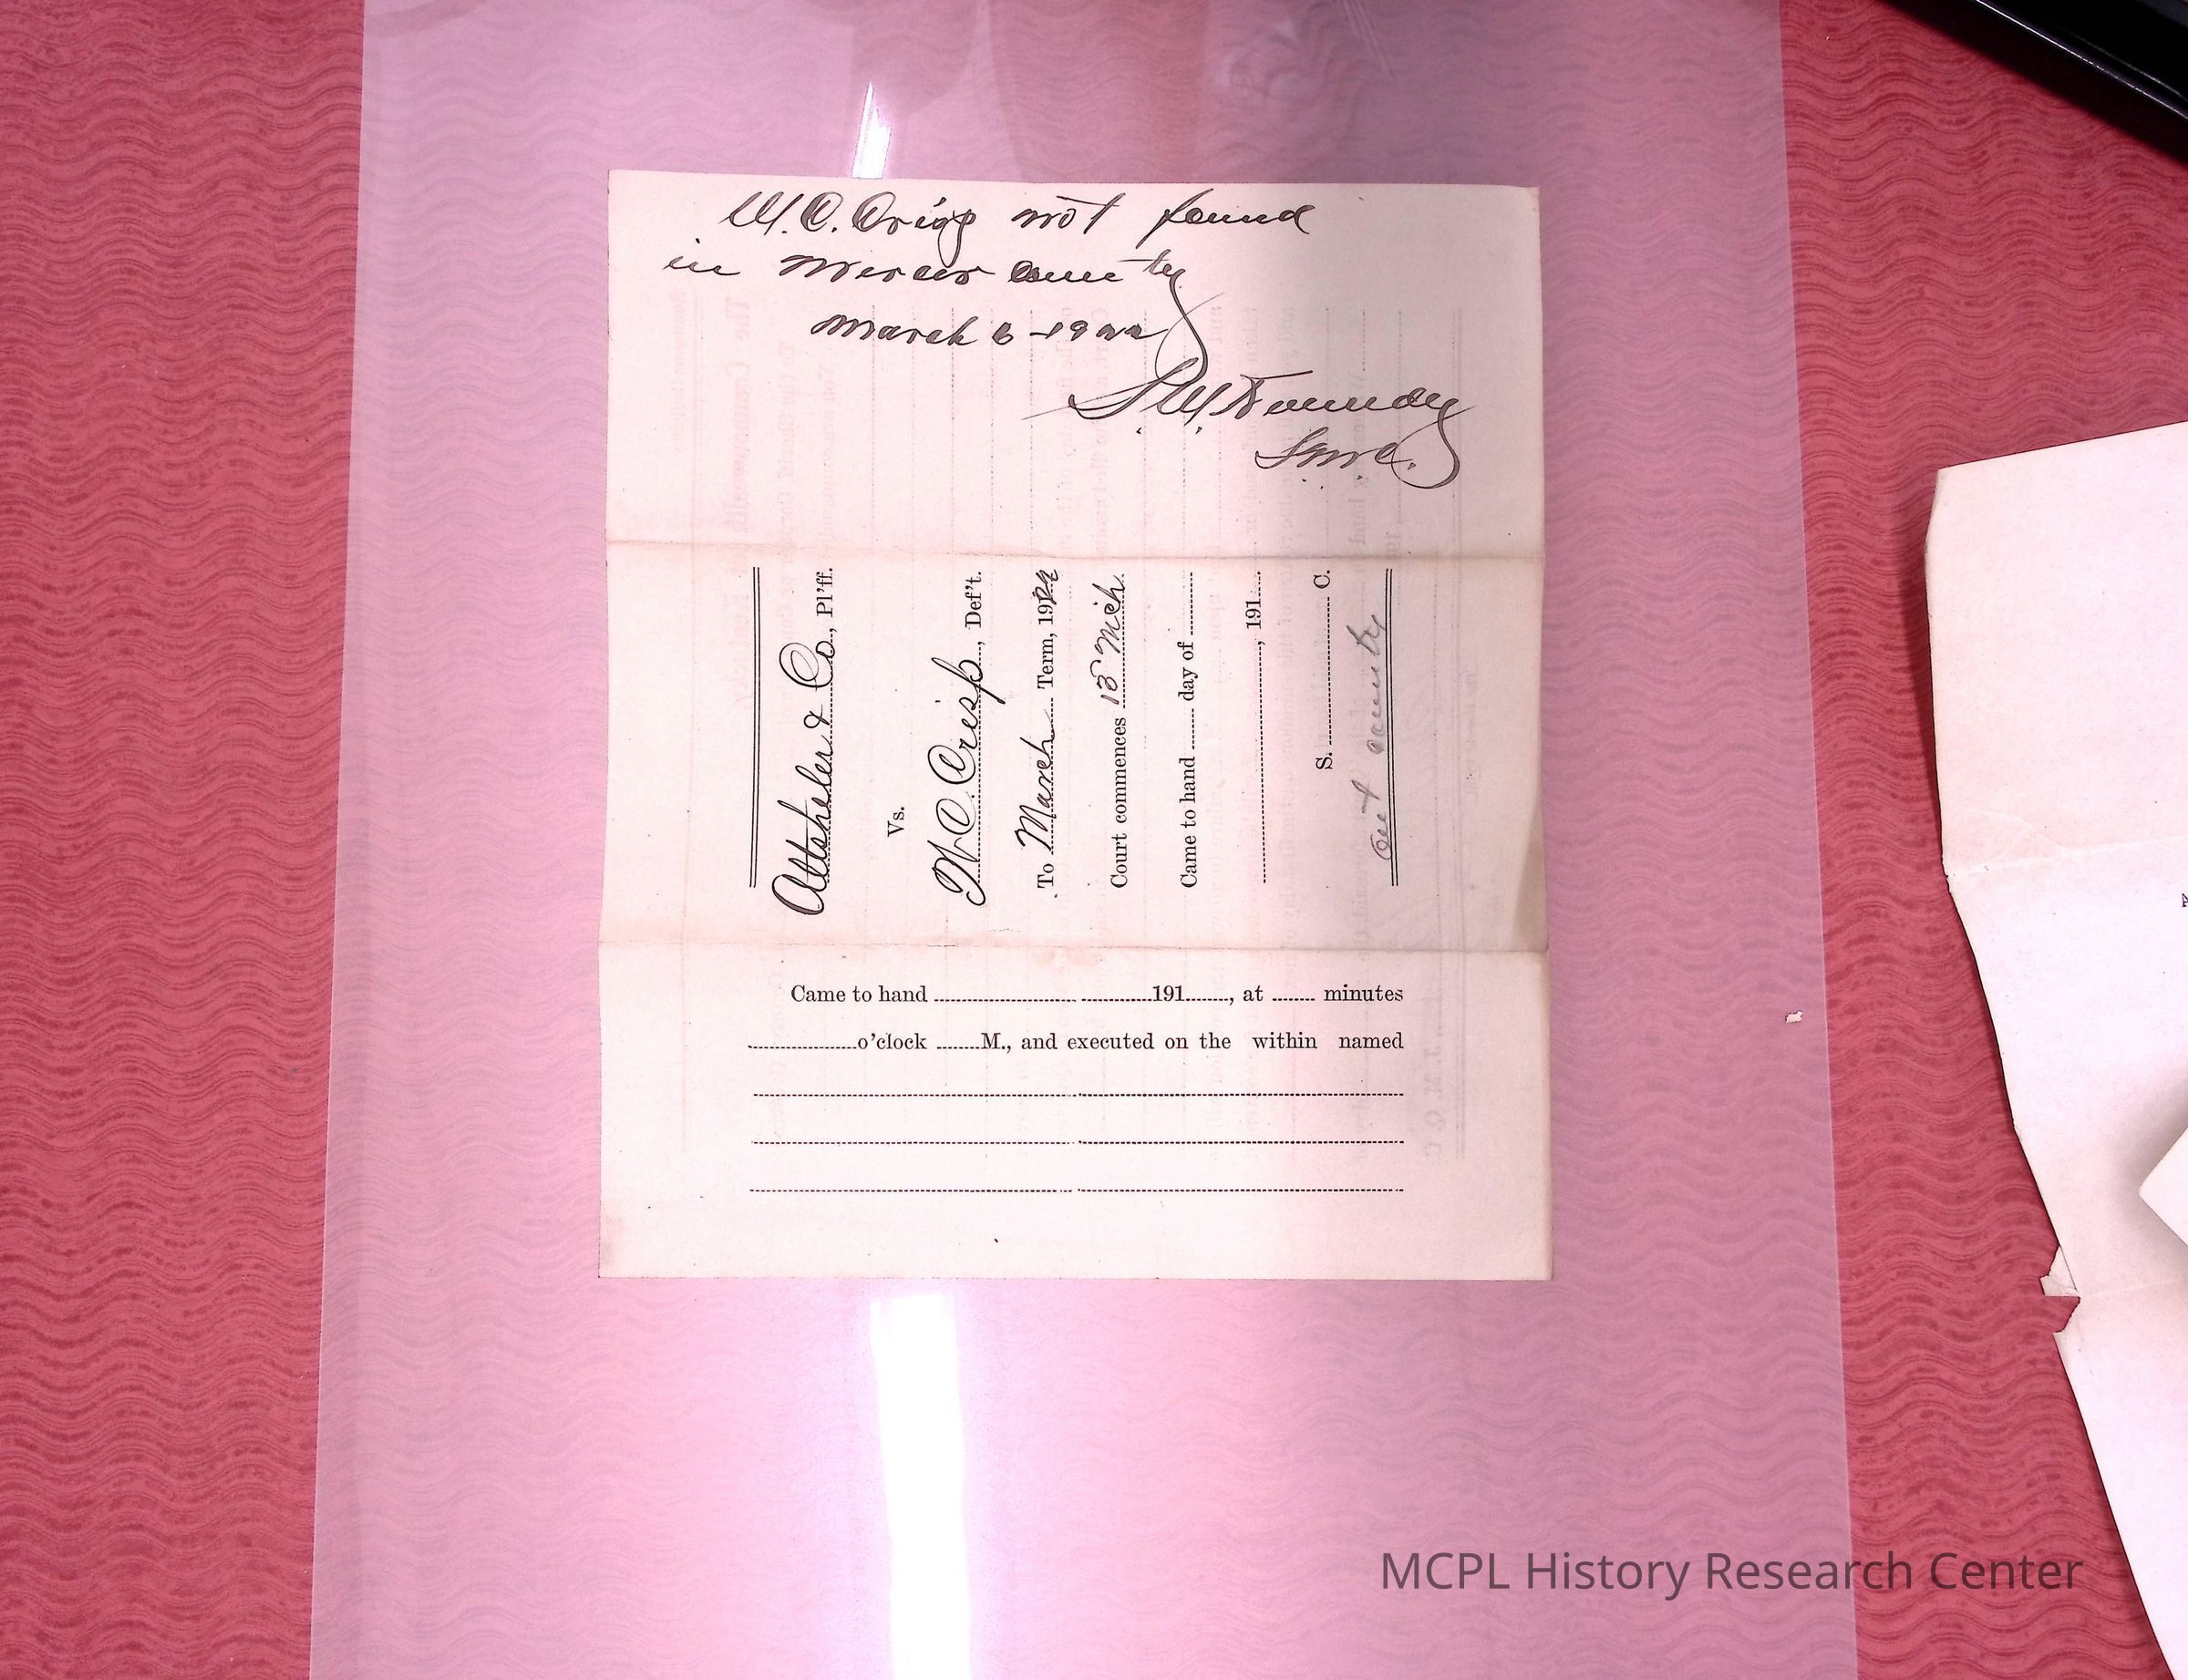 W. C. Crisp not found
in Mercer County
March 6 - 1922
Altsheler & Co., Pl'ff.
Vs.
W C Crisp, Def't.
To March Term, 1922
Court commences 13 Mch.
Came to hand ........ day of ............
............, 191....
S. ............ C.
out county
Came to hand ............ 191......, at ........ minutes
............o'clock ........M., and executed on the within named
MCPL History Research Center